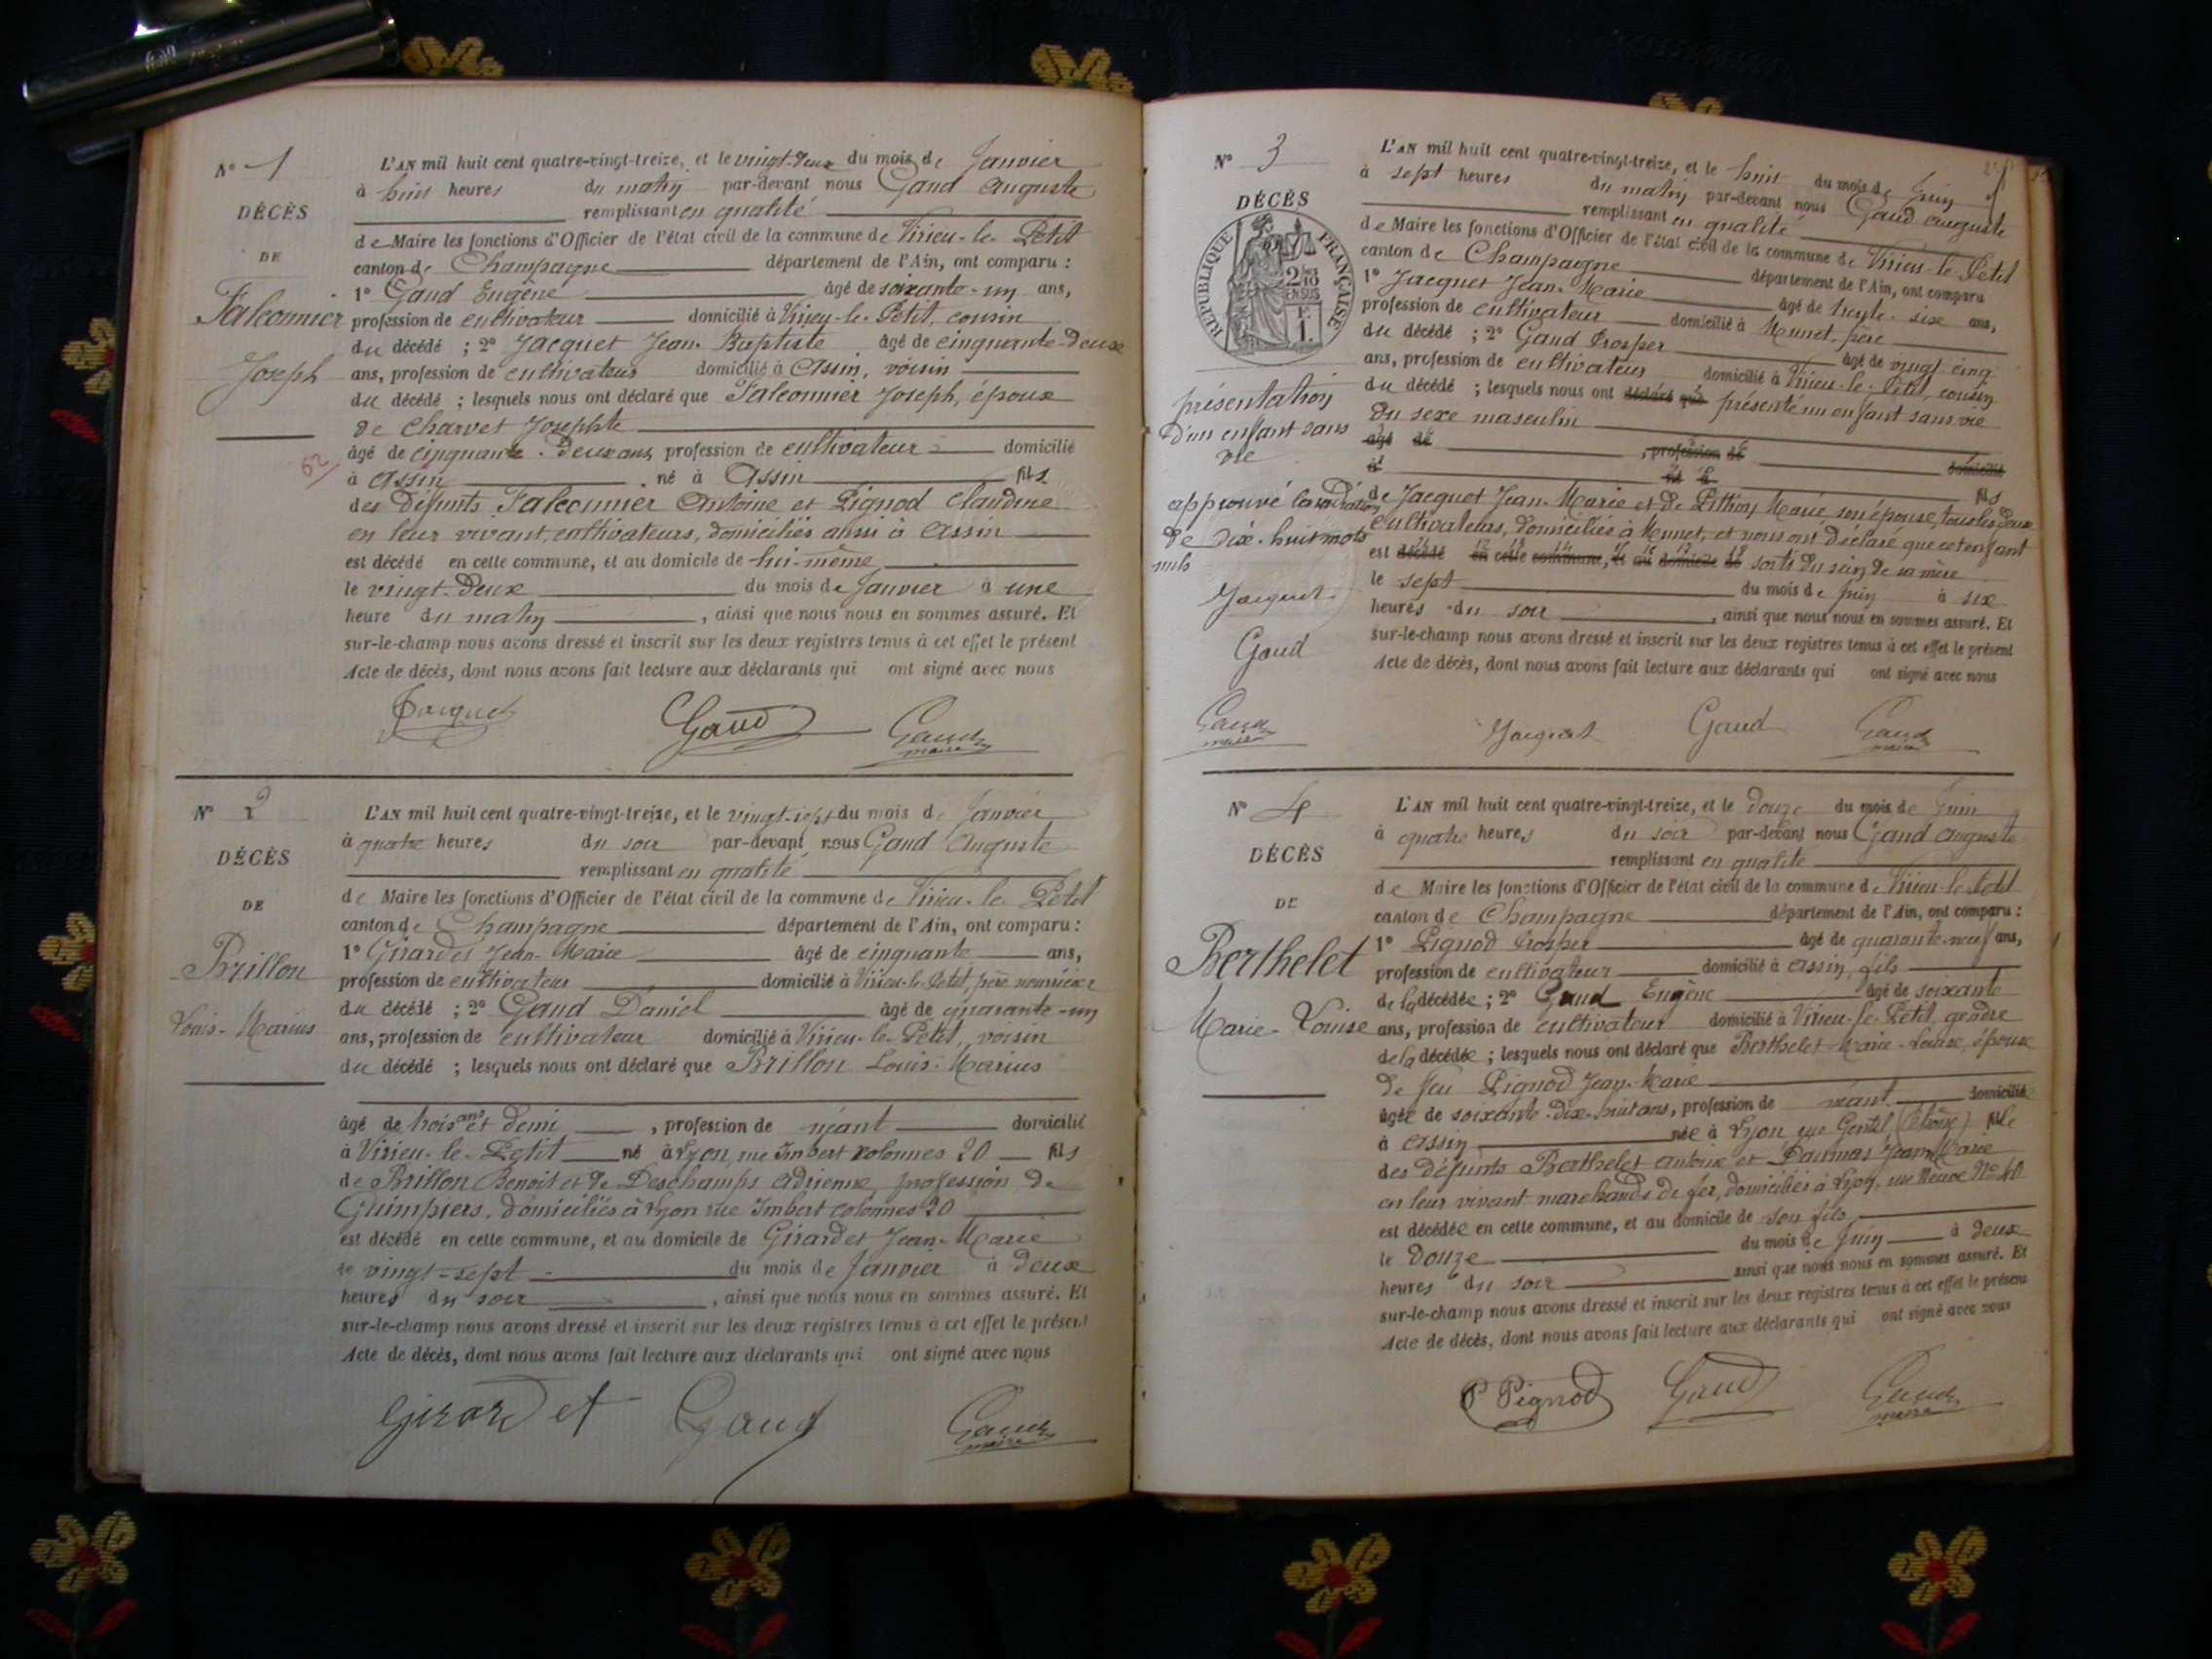 N° 1
DÉCÈS
DE
Falconnier
Joseph
62
L'AN mil huit cent quatre-vingt-treize, et le vingt-deux du mois de Janvier
à huit heures du matin par-devant nous Gaud Auguste
remplissant en qualité
de Maire les fonctions d'Officier de l'état civil de la commune de Virieu-le-Petit
canton de Champagne département de l'Ain, ont comparu :
1° Gaud Eugène âgé de soixante-un ans,
profession de cultivateur domicilié à Virieu-le-Petit, cousin
du décédé ; 2° Jacquet Jean-Baptiste âgé de cinquante-deux
ans, profession de cultivateur domicilié à Assin, voisin
du décédé ; lesquels nous ont déclaré que Falconnier Joseph, époux
de Charvet Josephte
âgé de cinquante-deux ans, profession de cultivateur domicilié
à Assin né à Assin fils
des défunts Falconnier Antoine et Pignod Claudine
en leur vivant, cultivateurs, domiciliés aussi à Assin
est décédé en cette commune, et au domicile de lui-même,
le vingt-deux du mois de Janvier à une
heure du matin, ainsi que nous nous en sommes assuré. Et
sur-le-champ nous avons dressé et inscrit sur les deux registres tenus à cet effet le présent
Acte de décès, dont nous avons fait lecture aux déclarants qui ont signé avec nous
Jacquet Gaud Gaud
maire
N° 2
DÉCÈS
DE
Brillon
Louis-Marius
L'AN mil huit cent quatre-vingt-treize, et le vingt-sept du mois de Janvier
à quatre heures du soir par-devant nous Gaud Auguste
remplissant en qualité
de Maire les fonctions d'Officier de l'état civil de la commune de Virieu-le-Petit
canton de Champagne département de l'Ain, ont comparu :
1° Girardet Jean-Marie âgé de cinquante ans,
profession de cultivateur domicilié à Virieu-le-Petit, père nourricier
du décédé ; 2° Gaud Daniel âgé de quarante-un
ans, profession de cultivateur domicilié à Virieu-le-Petit, voisin
du décédé ; lesquels nous ont déclaré que Brillon Louis-Marius
âgé de trois ans et demi, profession de néant domicilié
à Virieu-le-Petit né à Lyon, rue Imbert colonnes 20 fils
de Brillon Benoit et de Deschamps Adrienne, profession de
Guimpiers, domiciliés à Lyon rue Imbert colonnes 20
est décédé en cette commune, et au domicile de Girardet Jean-Marie
le vingt-sept du mois de Janvier à deux
heures du soir, ainsi que nous nous en sommes assuré. Et
sur-le-champ nous avons dressé et inscrit sur les deux registres tenus à cet effet le présent
Acte de décès, dont nous avons fait lecture aux déclarants qui ont signé avec nous
Girardet Gaud Gaud
maire
N° 3
DÉCÈS
RÉPUBLIQUE FRANÇAISE
2/10 EN SUS
F. 1.
présentation
d'un enfant sans
vie
approuvé la radiation
de dix-huit mots
nuls
Jacquet
Gaud
Gaud
maire
L'AN mil huit cent quatre-vingt-treize, et le huit du mois de Juin
à sept heures du matin par-devant nous Gaud Auguste
remplissant en qualité
de Maire les fonctions d'Officier de l'état civil de la commune de Virieu-le-Petit
canton de Champagne département de l'Ain, ont comparu
1° Jacquet Jean-Marie âgé de trente-six ans,
profession de cultivateur domicilié à Munet, père
du décédé ; 2° Gaud Prosper âgé de vingt cinq
ans, profession de cultivateur domicilié à Virieu-le-Petit, cousin
du décédé ; lesquels nous ont déclaré que présenté un enfant sans vie
du sexe masculin
âgé de, profession de domicilié
à né à fils
de Jacquet Jean-Marie et de Pithion Marie son épouse, tous les deux
cultivateurs, domiciliés à Munet, et nous ont déclaré que cet enfant
est décédé en cette commune, et au domicile de sorti du sein de sa mère
le sept du mois de Juin à six
heures du soir, ainsi que nous nous en sommes assuré. Et
sur-le-champ nous avons dressé et inscrit sur les deux registres tenus à cet effet le présent
Acte de décès, dont nous avons fait lecture aux déclarants qui ont signé avec nous
Jacquet Gaud Gaud
maire
N° 4
DÉCÈS
DE
Berthelet
Marie-Louise
L'AN mil huit cent quatre-vingt-treize, et le douze du mois de Juin
à quatre heures du soir par-devant nous Gaud Auguste
remplissant en qualité
de Maire les fonctions d'Officier de l'état civil de la commune de Virieu-le-Petit
canton de Champagne département de l'Ain, ont comparu :
1° Pignod Prosper âgé de quarante-neuf ans,
profession de cultivateur domicilié à Assin, fils
de la décédée ; 2° Gaud Eugène âgé de soixante
ans, profession de cultivateur domicilié à Virieu-le-Petit, gendre
de la décédée ; lesquels nous ont déclaré que Berthelet Marie-Louise, épouse
de feu Pignod Jean-Marie
âgée de soixante-dix-huit ans, profession de néant domiciliée
à Assin née à Lyon rue Gentil (Rhône) fille
des défunts Berthelet Antoine et Daumas Jeanne Marie
en leur vivant marchands de fer, domiciliés à Lyon, rue Neuve N° 40
est décédée en cette commune, et au domicile de son fils
le douze du mois de Juin à deux
heures du soir ainsi que nous nous en sommes assuré. Et
sur-le-champ nous avons dressé et inscrit sur les deux registres tenus à cet effet le présent
Acte de décès, dont nous avons fait lecture aux déclarants qui ont signé avec nous
P Pignod Gaud Gaud
maire